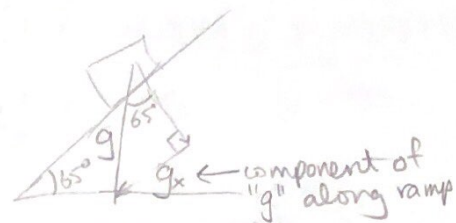 65°
g
65°
gx ← component of
"g" along ramp